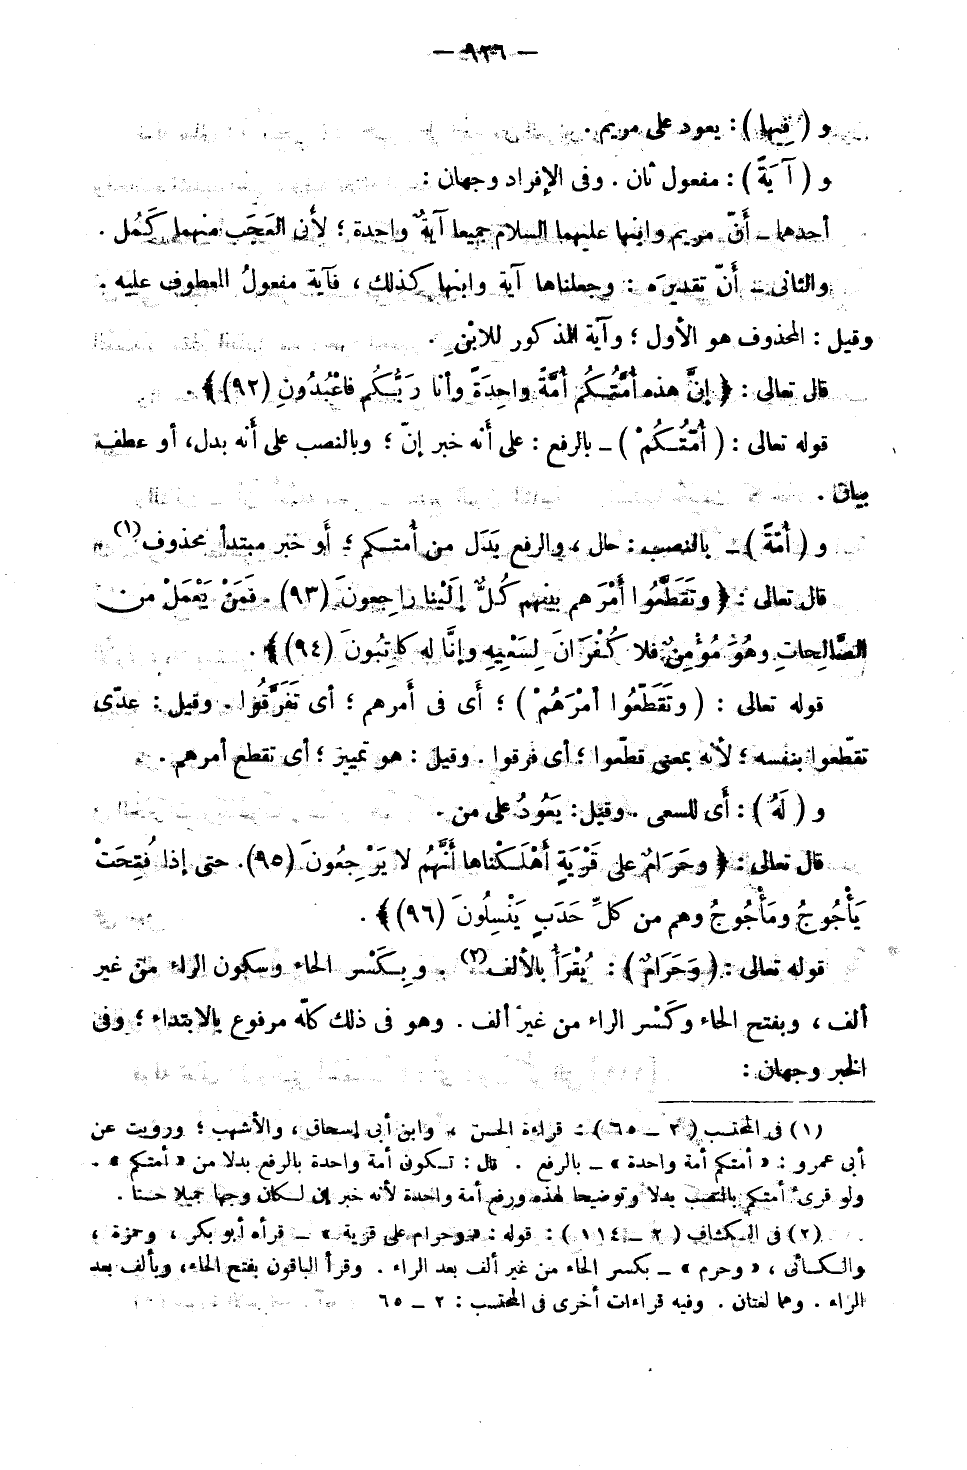 — ٩٢٦ —
و ( فِيها ) : يعود على مريم .
و ( آيَةً ) : مفعول ثان . وفى الإفراد وجهان :
أحدهما ـ أَنّ مريم وابنها عليهما السلام جميعا آيةٌ واحدة ؛ لأن العَجَب منهما كَمُل .
والثانى ـ أَنّ تقديرَه : وجعلناها آية وابنها كذلك ، فآية مفعولُ المعطوف عليه .
وقيل : المحذوف هو الأول ؛ وآية المذكور للابْنِ .
قال تعالى : ﴿ إنَّ هذه أُمَّتُكُم أُمَّةً واحِدَةً وأنا رَبُّكُم فاعْبُدُونِ (٩٢) ﴾ .
قوله تعالى : ( أُمَّتُكُمْ ) ـ بالرفع : على أَنه خبر إنّ ؛ وبالنصب على أَنه بدل، أو عطف
بيان .
و ( أُمَّةً ) ـ بالنصب : حال ، والرفع بَدَل من أُمتكم ؛ أَو خبر مبتدأ محذوف(١) .
قال تعالى : ﴿ وتَقَطَّعُوا أَمْرَهم بينهم كُلٌّ إلَيْنا راجِعونَ (٩٣) . فَمَنْ يَعْمَلْ من
الصَّالِحاتِ وهُوَ مُؤْمِنٌ فلا كُفْرَانَ لِسَعْيِهِ وإنَّا له كاتِبُونَ (٩٤) ﴾ .
قوله تعالى : ( وتَقَطَّعُوا أمْرَهُمْ ) ؛ أَى فى أَمرهم ؛ أى تَفَرَّقُوا . وقيل : عدّى
تقطّعوا بنفسه ؛ لأنه بمعنى قطّعوا ؛ أى فرقوا . وقيل : هو تمييز ؛ أى تقطع أمرهم .
و ( لَهُ ) : أَى للسعى . وقيل : يَعُودُ على من .
قال تعالى : ﴿ وحَرَامٌ على قَرْيَةٍ أهْلَكْناها أنَّهُم لا يَرْجِعُونَ (٩٥). حتى إذا فُتِحَتْ
يَأْجُوجُ ومَأْجُوجُ وهم من كلِّ حَدَبٍ يَنْسِلُونَ (٩٦) ﴾ .
قوله تعالى : ( وَحَرَامٌ ) : يُقْرَأُ بالألف(٢) . وبِكَسْر الحاء وسكون الراء من غير
ألف ، وبفتح الحاء وكَسْر الراء من غير ألف . وهو فى ذلك كلّه مرفوع بالابتداء ؛ وفى
الخبر وجهان :
(١) فى المحتسب ( ٢ ـ ٦٥ ) : قراءة الحسن ، وابن أبى إسحاق ، والأشهب ؛ ورويت عن
أبى عمرو : « أمتكم أمة واحدة » ـ بالرفع . قال : تكون أمة واحدة بالرفع بدلا من « أمتكم » .
ولو قرئ أمتكم بالنصب بدلا وتوضيحا لهذه ورفع أمة واحدة لأنه خبر إن لكان وجها جميلا حسنا .
(٢) فى الكشاف ( ٢ ـ ١١٤ ) : قوله : « وحرام على قرية » ـ قرأه أبو بكر ، وحمزة ،
والكسائى ، « وحرم » ـ بكسر الحاء من غير ألف بعد الراء . وقرأ الباقون بفتح الحاء، وبألف بعد
الراء . وهما لغتان . وفيه قراءات أخرى فى المحتسب : ٢ ـ ٦٥